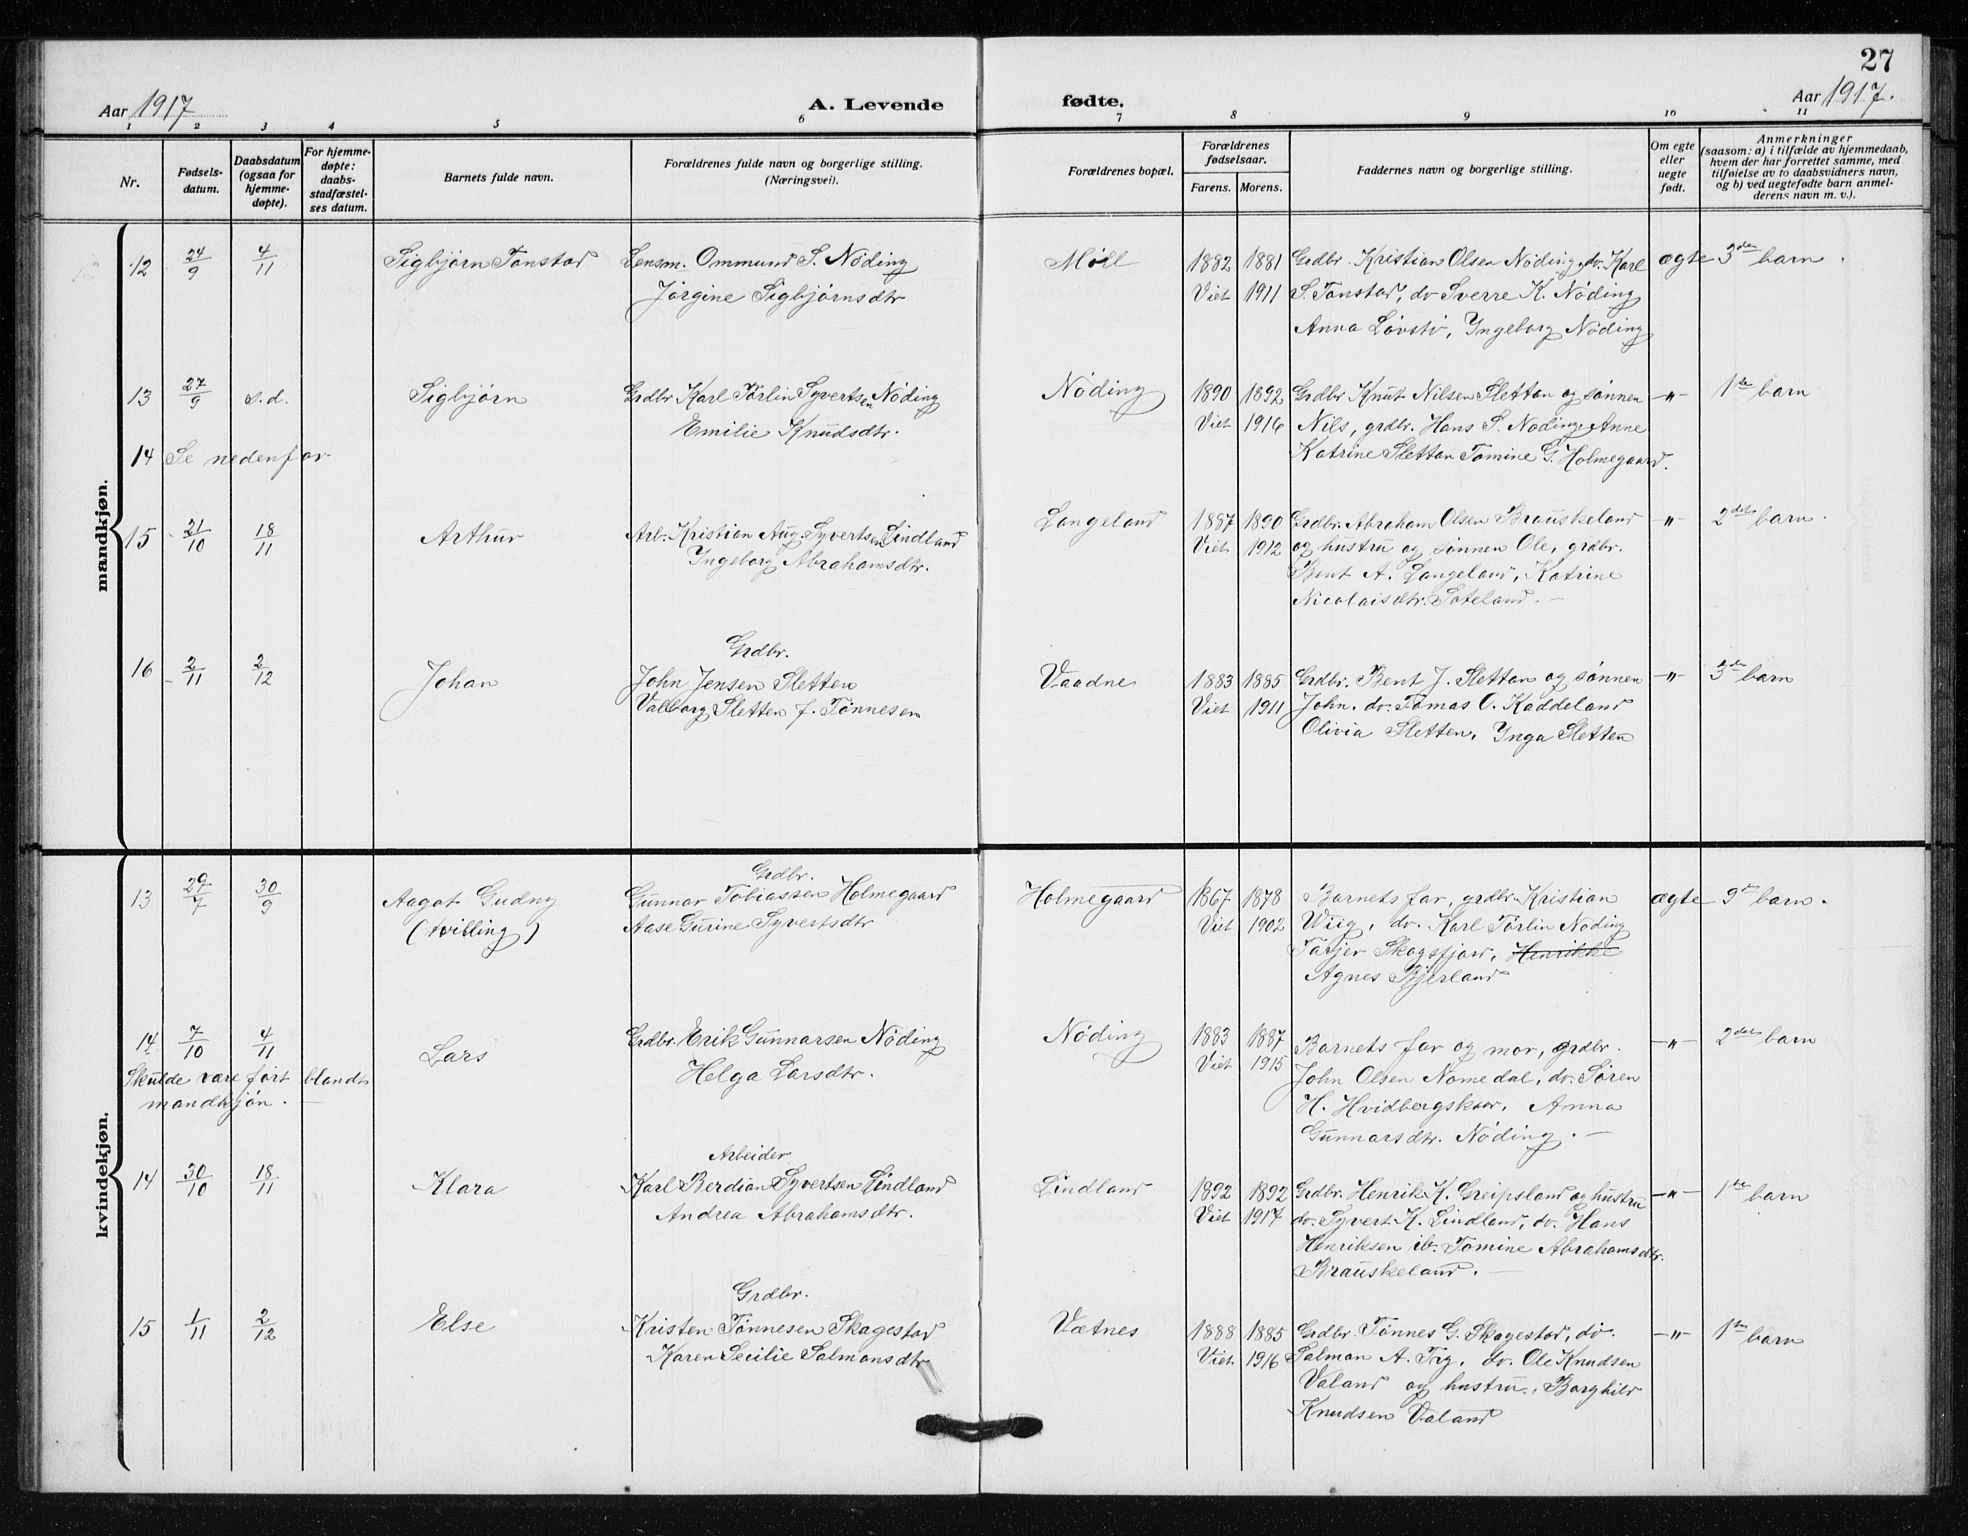 27
Aar 1917 A. Levende fødte. Aar 1917.
1 2 3 4 5 6 7 8 9 10 11
Nr. Fødsels-datum. Daabsdatum (ogsaa for hjemme-døpte). For hjemme-døpte: daabs-stadfæstel-ses datum. Barnets fulde navn. Forældrenes fulde navn og borgerlige stilling. (Næringsvei). Forældrenes bopæl. Forældrenes fødselsaar. Farens. Morens. Faddernes navn og borgerlige stilling. Om egte eller uegte født. Anmerkninger (saasom: a) i tilfælde av hjemmedaab, hvem der har forrettet samme, med tilføielse av to daabsvidners navn, og b) ved uegtefødte barn anmel-derens navn m. v.).
mandkjøn.
12 24/9 4/11 Sigbjørn Tonstad Lensm. Ommund S. Nöding Møll 1882 1881 Grdbr. Kristian Olsen Nöding, do. Karl ægte 3die barn.
Jörgine Sigbjørnsdtr Viet 1911 S. Tonstad, do Sverre K. Nöding
Anna Lövstö, Ingeborg Nöding
13 27/9 s.d. Sigbjørn Grdbr Karl Törlin Syvertsen Nöding Nöding 1890 1892 Grdbr Knut Nilsen Slettan og sønnen —"— 1ste barn
Emilie Knudsdtr. Viet 1916 Nils, grdbr. Hans S. Nöding, Anne
14 Se nedenfor Katrine Slettan Tomine G. Holmegaard.
15 21/10 18/11 Arthur Arb. Kristian Aug. Syvertsen Lindland Langeland 1887 1890 Grdbr. Abraham Olsen Brauskeland " 2det barn.
Ingeborg Abrahamsdtr. Viet 1912 og hustru og sønnen Ole, grdbr.
Bent A. Langeland, Katrine
Nicolaisdtr. Søteland. —
Grdbr.
16 2/11 2/12 Johan John Jensen Sletten Vaadne 1883 1885 Grdbr. Bent J. Slettan og sønnen —"— 3die barn
Valborg Sletten f. Tønnesen Viet 1911 John, do. Tomas O. Kaddeland
Olivia Sletten, Inga Sletten
kvindekjøn.
Grdbr.
13 29/7 30/9 Aagot Gudny Gunnar Tobiassen Holmegaard Holmegaard 1867 1878 Barnets far, grdbr. Kristian ægte 9de barn.
(tvilling) Aase Gurine Syvertsdtr Viet 1902 Wiig, do. Karl Törlin Nöding
Tarjer Skogsfjord, Henrikke
Agnes Bjerland
14 7/10 4/11 Lars Grdbr. Erik Gunnarsen Nöding Nöding 1883 1887 Barnets far og mor, grdbr. —"— 2det barn
Skulde være ført blandt Helga Larsdtr. Viet 1915 John Olsen Nomedal, do. Søren
mandkjøn. — H. Hvidbergskaar, Anna
Gunnarsdtr. Nöding. —
Arbeider
14 30/10 18/11 Klara Karl Berdian Syvertsen Lindland Lindland 1892 1892 Grdbr. Henrik K. Greipsland og hustru —"— 1ste barn
Andrea Abrahamsdtr. Viet 1917 do. Syvert K. Lindland, do. Hans
Henriksen ib. Tomine Abrahamsdtr.
Brauskeland. —
Grdbr.
15 1/11 2/12 Else Kristen Tønnesen Skagestad Vætnes 1888 1885 Grdbr. Tønnes G. Skagestad, do. —"— 1ste barn
Karen Secilie Salmonsdtr Viet 1916 Salman A. Try, do. Ole Knudsen
Valand og hustru, Borghild
Knudsen Valand